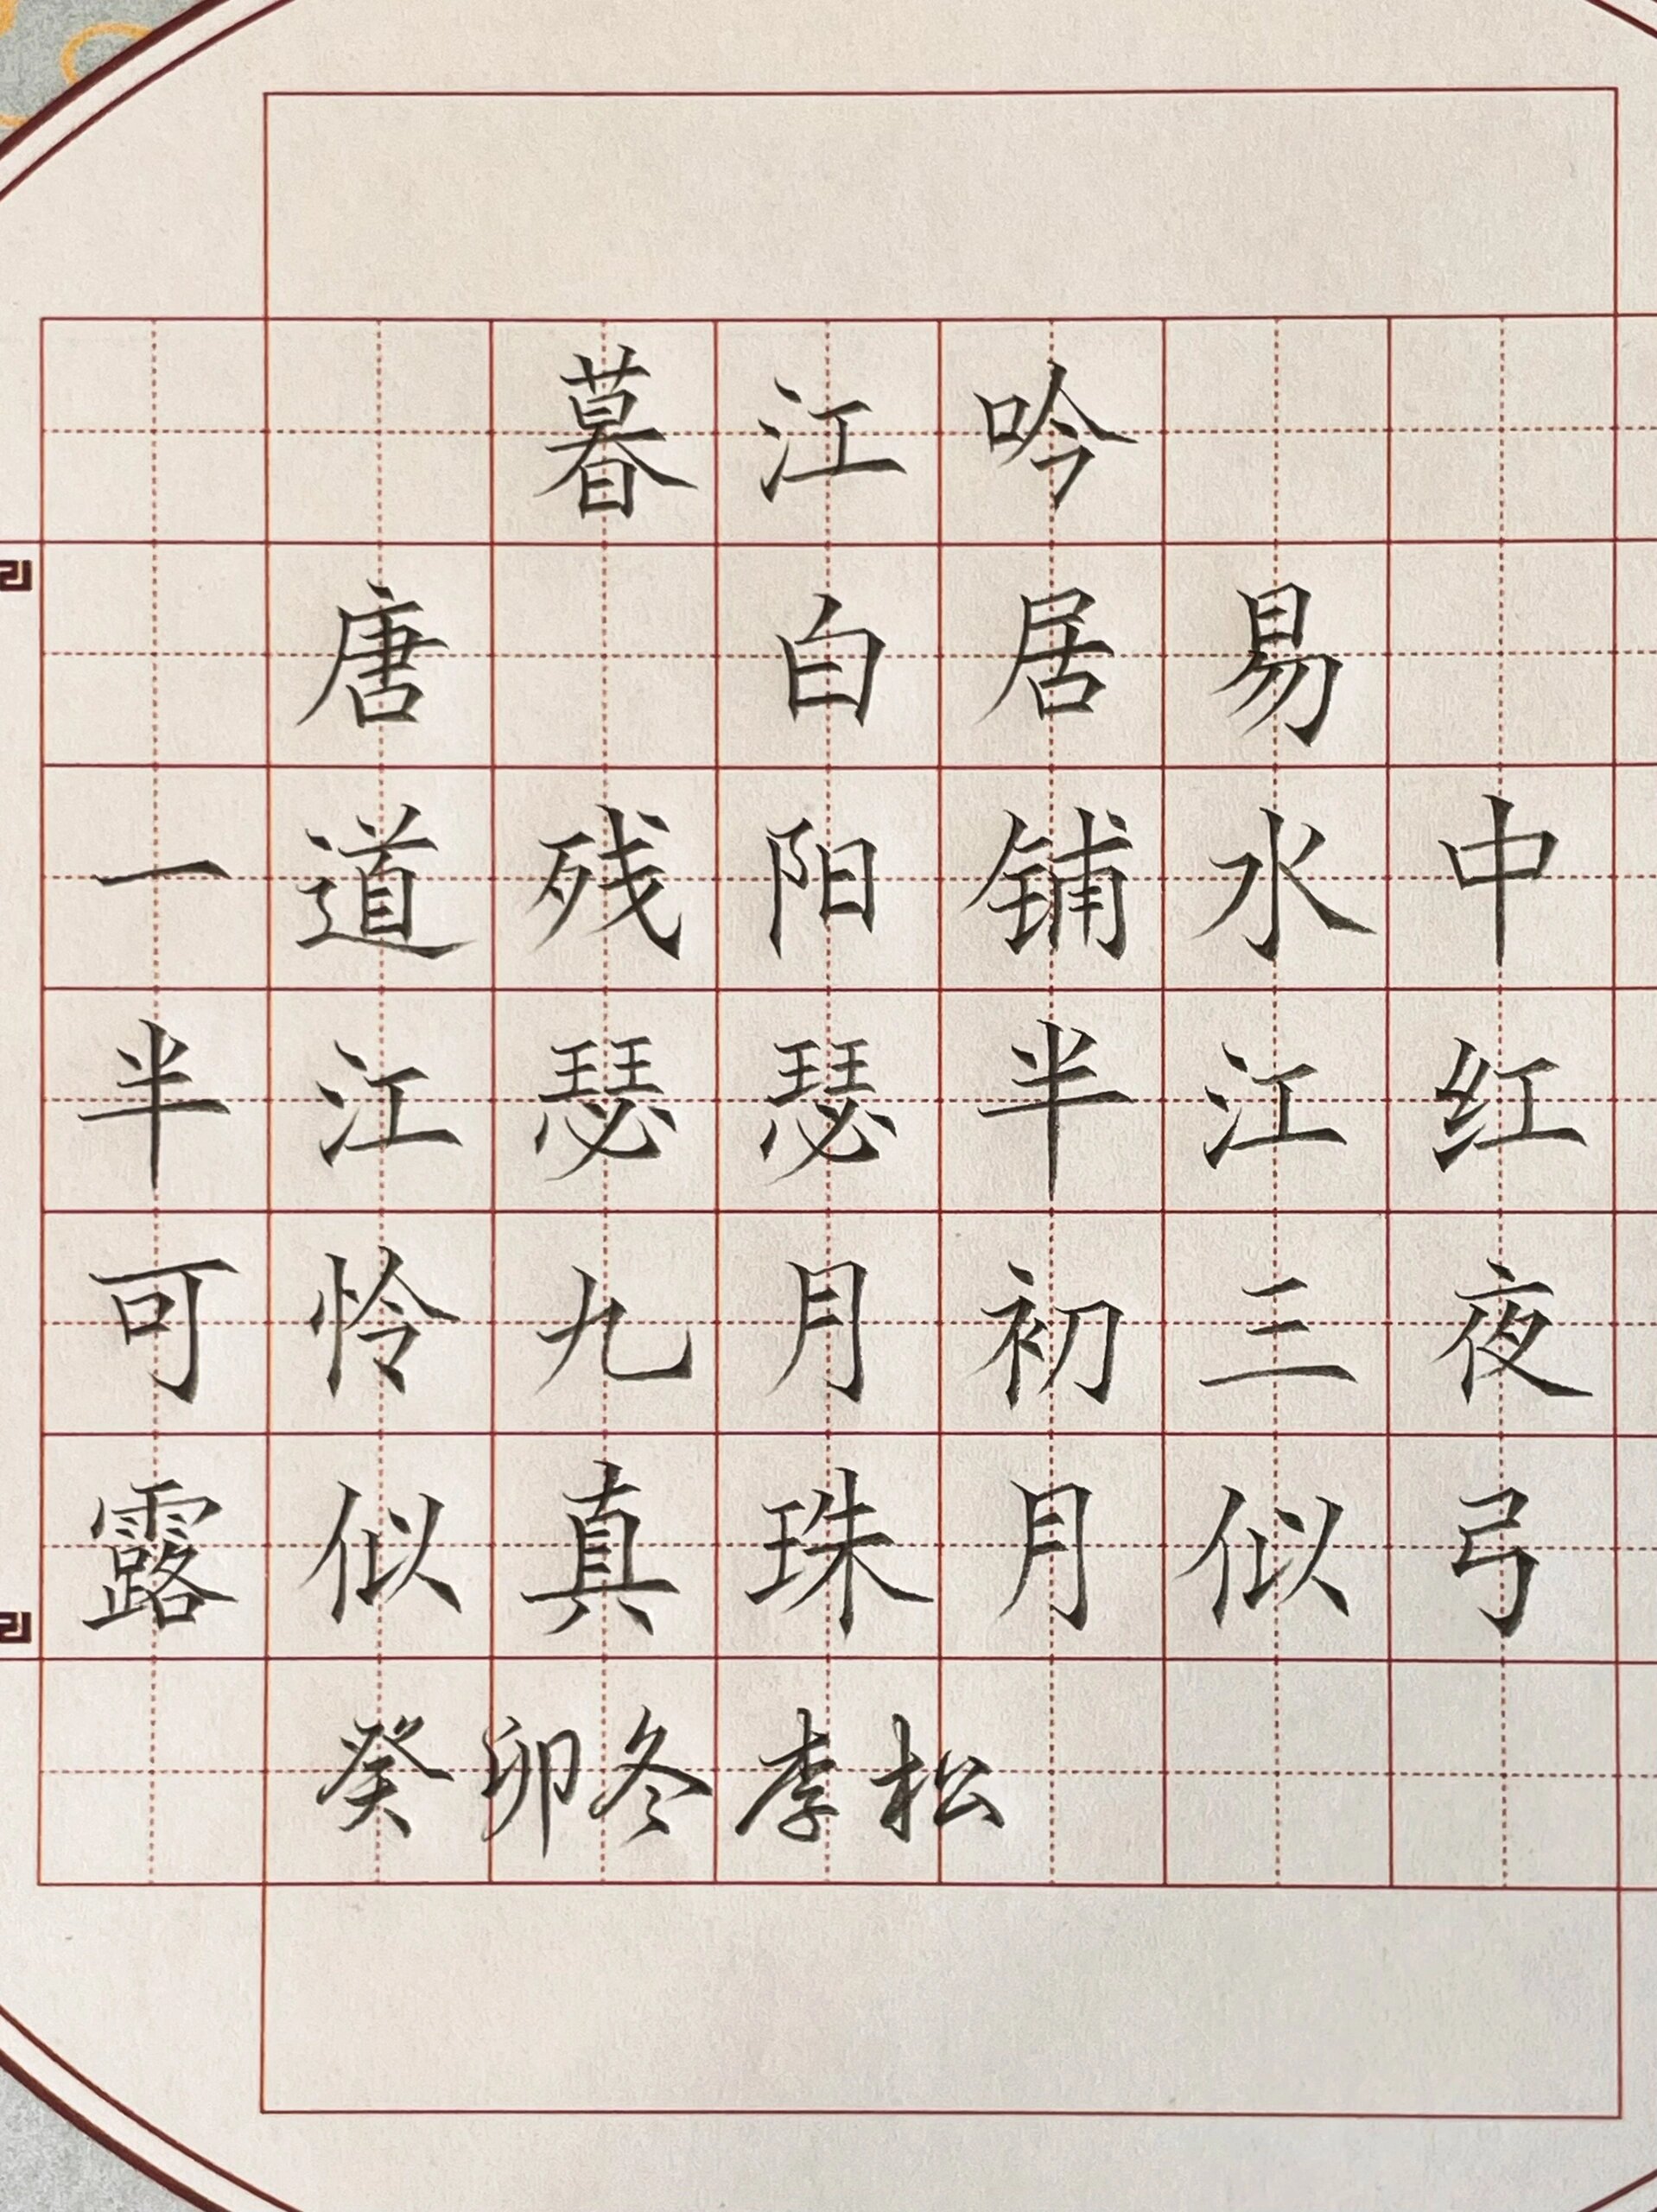 暮江吟
唐 白居易
一道残阳铺水中
半江瑟瑟半江红
可怜九月初三夜
露似真珠月似弓
癸卯冬李松